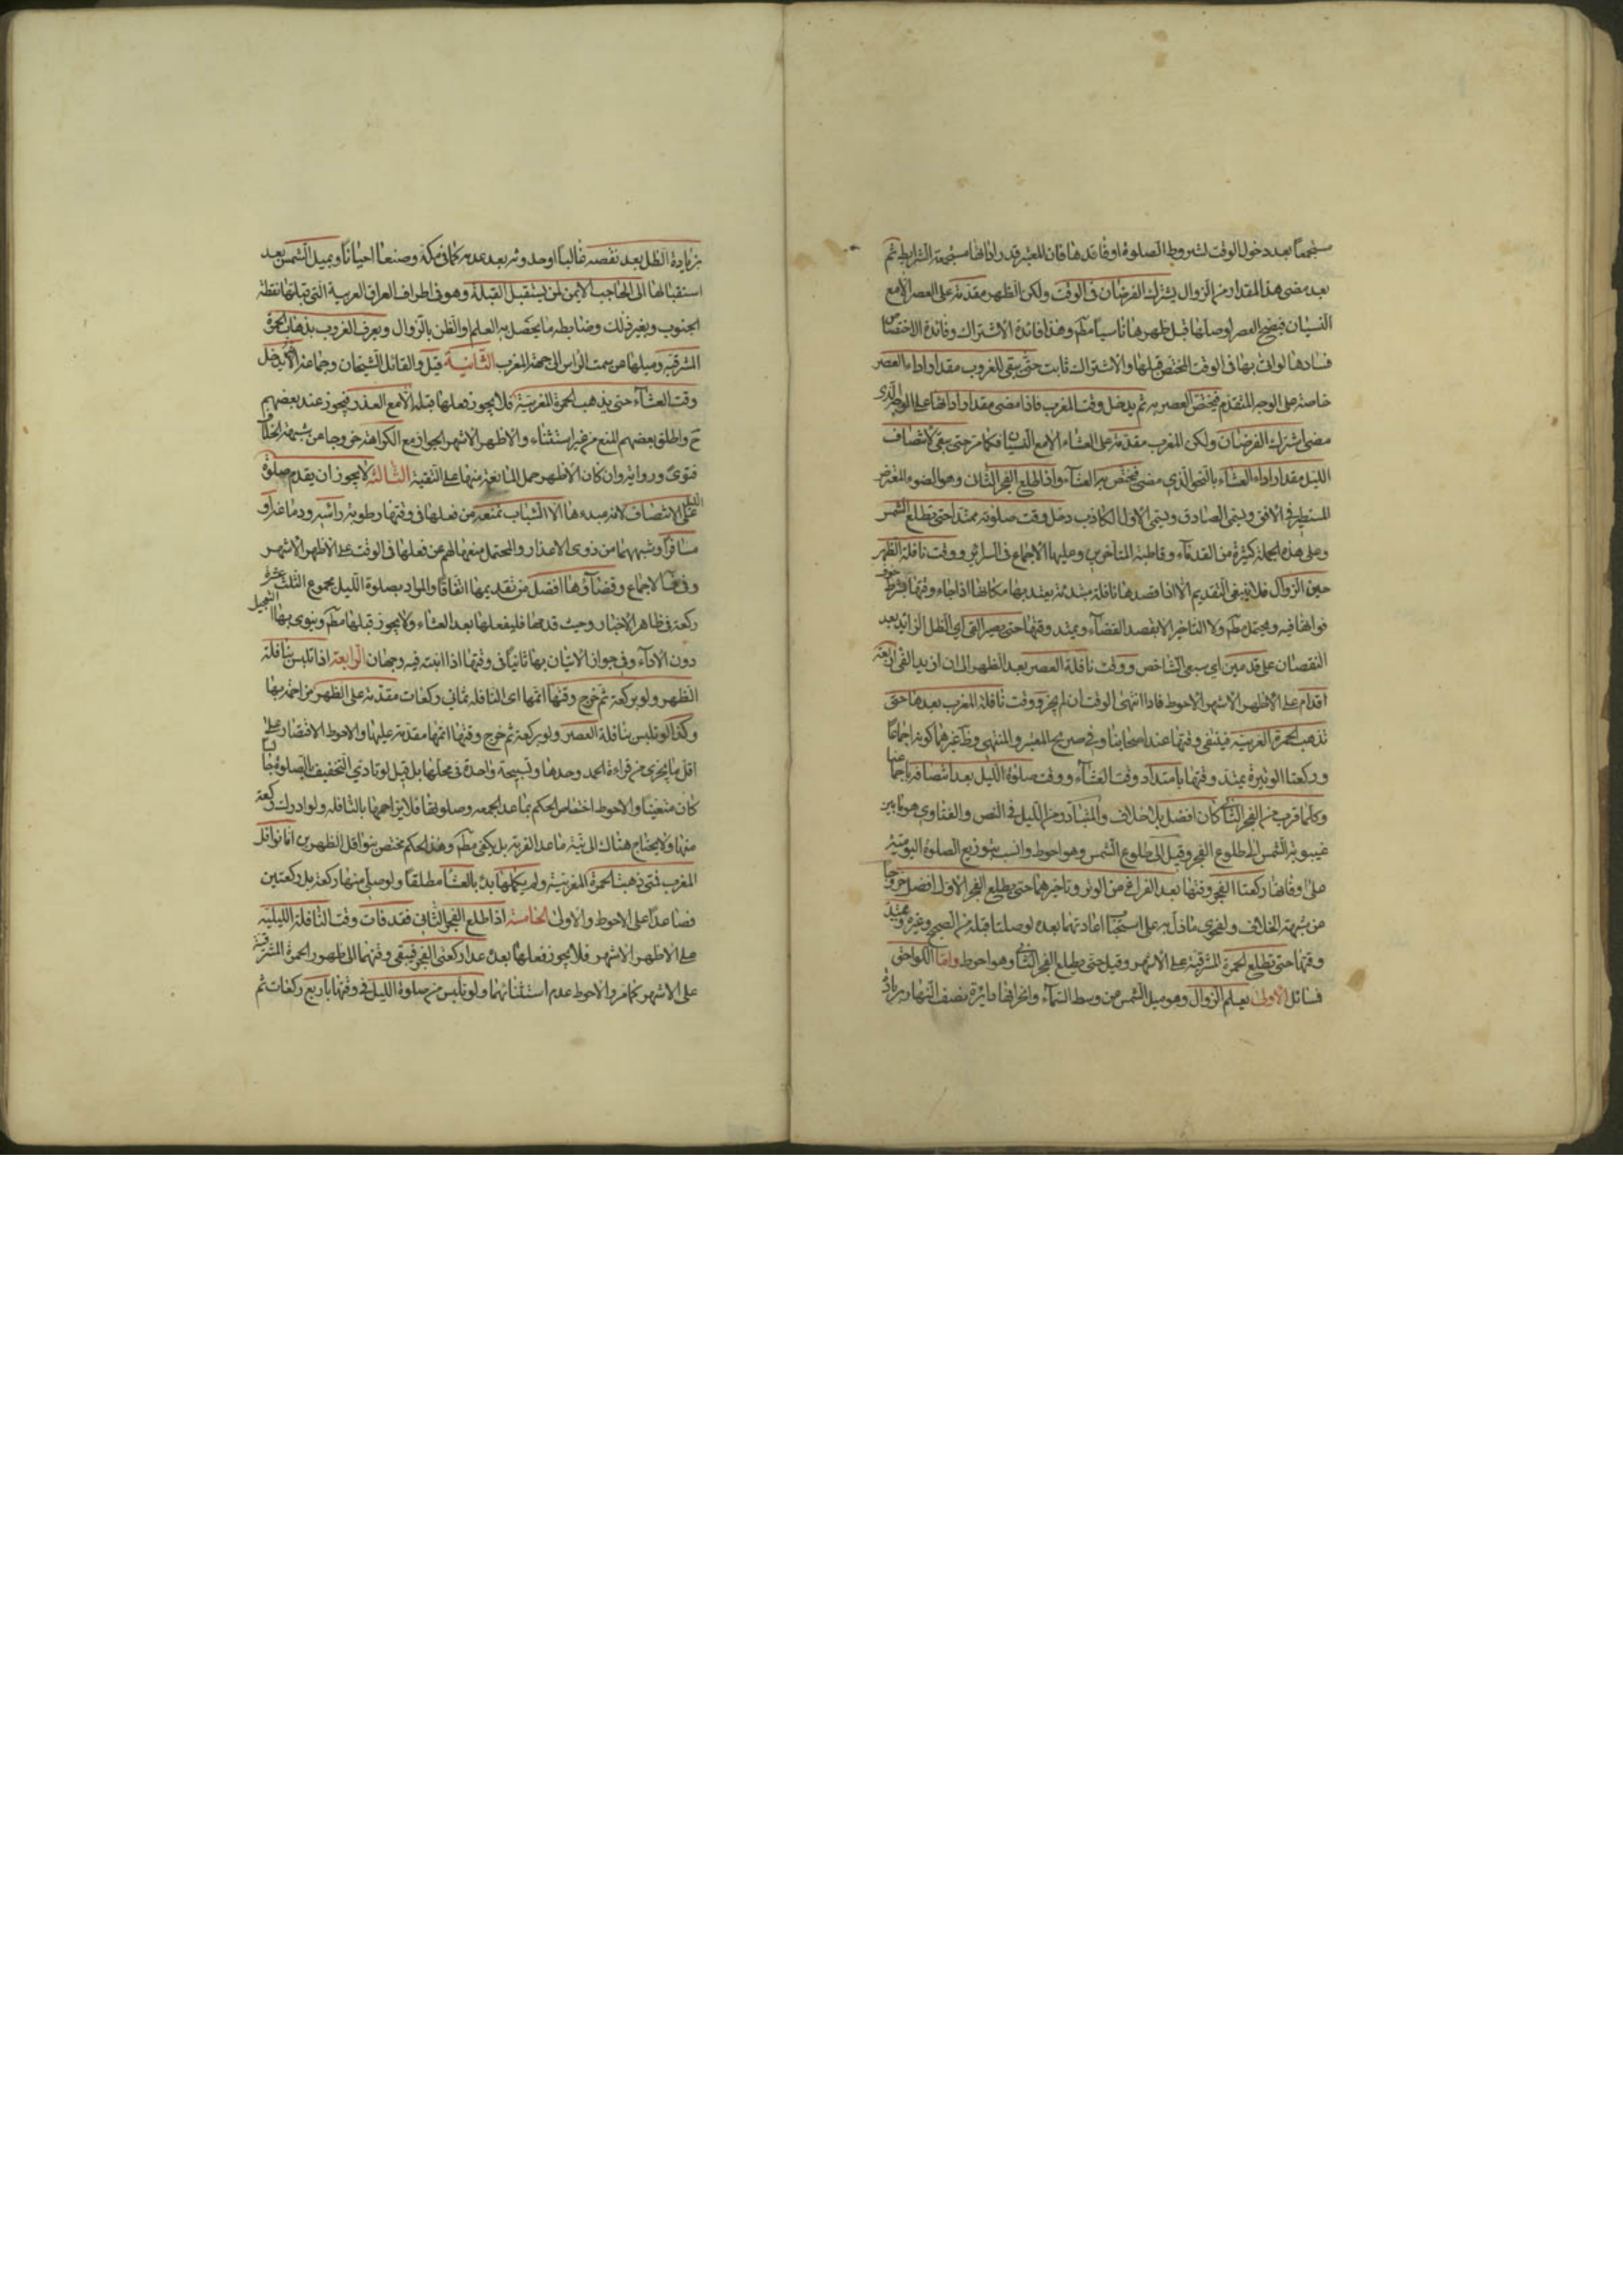 مستجمعا بعد دخول الوقت لشروط الصلوة او فاقدها فان المعتبر قدر ادائها مستجمعة الشرايط ثم
بعد مضى هذا المقدار من الزوال يشترك الفرضان فى الوقت ولكن الظهر مقدمة على العصر الا مع
النسيان فيصح العصر لو صلاها قبل ظهرها ناسيا مطم وهذا فائدة الاشتراك وفائدة الاختصاص
فسادها لو اتى بها فى الوقت المختص قبلها والاشتراك ثابت حتى يبقى للغروب مقدار اداء العصر
خاصة على الوجه المتقدم فيختص العصر به ثم يدخل وقت المغرب فاذا مضى مقدار ادائها على الوجه الذى
مضى اشترك الفرضان ولكن المغرب مقدمة على العشاء الا مع النسيان فكما مر حتى يبقى لانتصاف
الليل مقدار اداء العشاء بالنحو الذي مضى فيختص به العشآء واذا طلع الفجر الثانى وهو الضوء المعترض
المستطير فى الافق ويسمى الصادق ويسمى الاول الكاذب دخل وقت صلوته ممتدا حتى تطلع الشمس
وعلى هذه الجملة كثيرة من القدمآء وقاطبة المتاخرين وعليها الاجماع فى السرائر ووقت نافلة الظهر
حين الزوال فلا ينبغى التقديم الا اذا قصدها نافلة مبتدئة يعتد بها مكانها اذا جاء وقتها بشرط خوف
فواتها فيه ويحتمل مطم ولا التاخير الا بقصد القضآء ويمتد وقتها حتى يصير الفئ اي الظل الزائد بعد
النقصان على قدمين اي سبعى الشاخص ووقت نافلة العصر بعد الظهر الى ان يزيد الفئ اربعة
اقدام على الاظهر الاشهر الاحوط فاذا انتهى الوقت ان لم يجز ووقت نافلة المغرب بعدها حتى
تذهب الحمرة المغربية فينتفى وقتها عند اصحابنا وفى صريح المعتبر والمنتهى وظ غيرهما كونه اجماعا
وركعتا الوتيرة يمتد وقتها بامتداد وقت العشآء ووقت صلوة الليل بعد انتصافه باجماعنا
وكلما قرب من الفجر الثانى كان افضل بلا خلاف والمتبادر من الليل فى النص والفتاوى هو ما بين
غيبوبة الشمس الى طلوع الفجر وقيل الى طلوع الشمس وهو احوط وانسب بتوزيع الصلوة اليومية
على اوقاتها ركعتا الفجر وقتها بعد الفراغ من الوتر وتاخيرهما حتى يطلع الفجر الاول افضل خروجا
من شبهة الخلاف ولفحوى ما دل على استحباب اعادتهما بعده لو صلتا قبله من الصحيح وغيره ويمتد
وقتها حتى تطلع الحمرة المشرقية على الاشهر وقيل حتى يطلع الفجر الثانى وهو احوط واما اللواحق
فمسائل الاولى يعلم الزوال وهو ميل الشمس من وسط السمآء وانحرافها دائرة نصف النهار بزيادة
بزيادة الظل بعد نقصه غالبا او حدوثه بعد عدمه كما فى مكة وصنعا احيانا وبميل الشمس بعد
استقبالها الى الحاجب الايمن لمن يستقبل القبلة وهو فى اطراف العراق الغربية التى قبلتها نقطة
الجنوب وبغير ذلك وضابطه ما يحصل به العلم او الظن بالزوال ويعرف الغروب بذهاب الحمرة
المشرقية وميلها عن سمت الراس الى جهة المغرب الثانية قيل والقائل الشيخان وجماعة لا يدخل
وقت العشآء حتى يذهب الحمرة المغربية فلا يجوز فعلها قبله الا مع العذر فيجوز عند بعضهم
ح واطلق بعضهم المنع من غير استثناء والاظهر الاشهر الجواز مع الكراهة خروجا عن شبهة الخلاف
فتوى ورواية وان كان الاظهر حمل المانعة منها على التقية الثالثة لا يجوز ان يقدم صلوة الليل
على الانتصاف لانه مبدءها الا الشباب تمنعه من فعلها فى وقتها رطوبة راسه ودماغه او
مسافرا وشبههما من ذوى الاعذار والمحتمل منعها لهم عن فعلها فى الوقت على الاظهر الاشهر
وفى الاجماع وقضآؤها افضل من تقديمها اتفاقا والمراد بصلوة الليل مجموع الثلث عشرة
ركعة فى ظاهر الاخبار وحيث قدمها فليفعلها بعد العشاء ولا يجوز قبلها مطم وينوى بها التعجيل
دون الادآء وفى جواز الاتيان بها ثانيا فى وقتها اذا انتبه فيه وجهان الرابعة اذا تلبس بنافلة
الظهر ولو بركعة ثم خرج وقتها اتمها اى النافلة بثمانى ركعات مقدمة على الظهر مزاحمة بها
وكذا لو تلبس بنافلة العصر ولو بركعة ثم خرج وقتها اتمها مقدمة عليها والاحوط الاقتصار على
اقل ما يجزى من قراءة الحمد وحدها وتسبيحة واحدة فى محلها بل قيل لو تادى التخفيف بالصلوة جالسا
كان متعينا والاحوط اختصاص الحكم بما عدا الجمعه وصلوتها فلا يزاحمها بالنافلة ولو ادرك ركعة
منها ولا يحتاج هناك الى نية ما عدا القربة بل يكفى مطم وهذا الحكم مختص بنوافل الظهرين اما نوافل
المغرب فمتى ذهبت الحمرة المغربية ولم يكملها بدئ بالعشآء مطلقا ولو صلى منها ركعة بل ركعتين
فصاعدا على الاحوط والاولى الخامسة اذا طلع الفجر الثانى فقد فات وقت النافلة الليلية
على الاظهر الاشهر فلا يجوز فعلها بعده عدا ركعتى الفجر فيبقى وقتهما الى ظهور الحمرة المشرقية
على الاشهر كما مر والاحوط عدم استثنائهما ولو تلبس من صلوة الليل فى وقتها باربع ركعات ثم